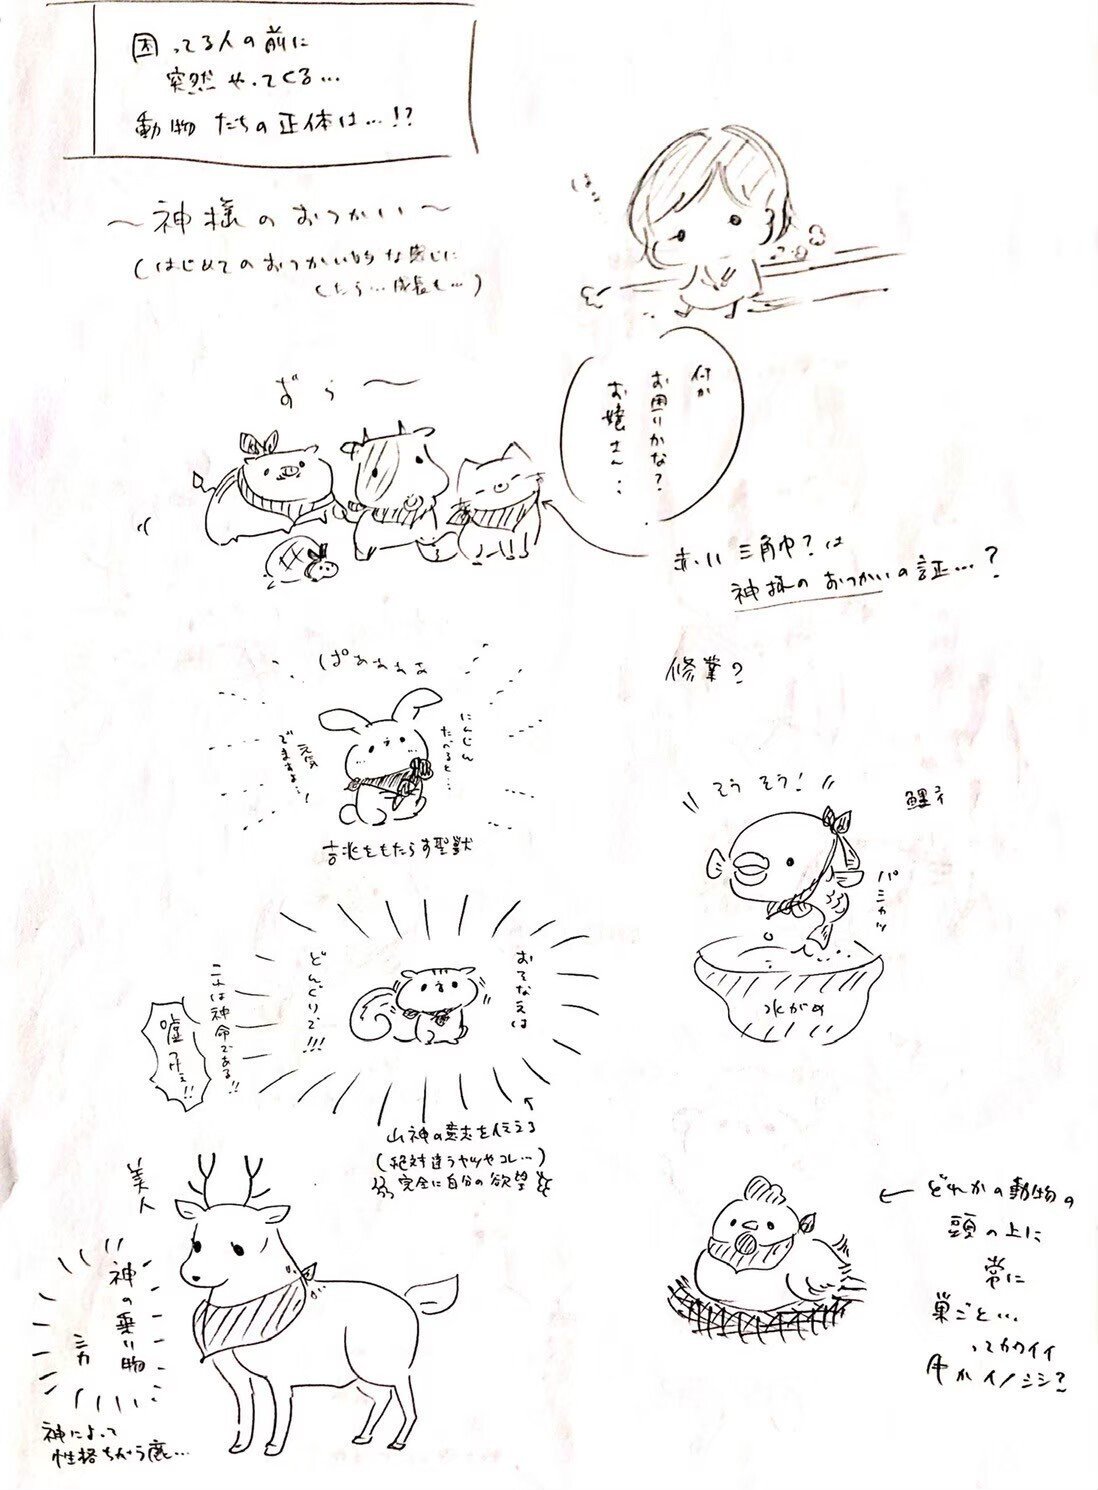 困ってる人の前に
突然やってくる…
動物たちの正体は…!?
～神様のおつかい～
(はじめてのおつかい的な感じに
したら…成長も…)
はっ…
ずら～
何か
お困りかな？
お嬢さん…
赤い三角巾？は
神様のおつかいの証…？
ぱぁぁぁぁ
にんじん
たべると…
元気
でますよ…！
吉兆をもたらす聖獣
修業？
そうそう！
鯉？
水がめ
おそなえは
どんぐりで!!!
これは神命である!!
嘘つけぇ!!
山神の意志を伝える
(絶対違うヤツやコレ…)
完全に自分の欲望
美人
神の乗り物
神によって
性格ちがう鹿…
どれかの動物の
頭の上に
常に
巣ごと…
ってカワイイ
牛かイノシシ？